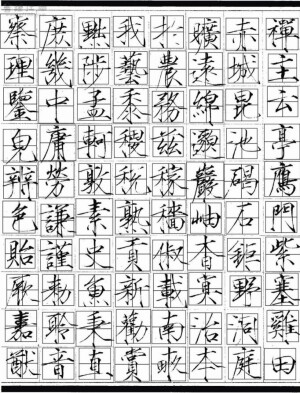 禪主云亭鴈門紫塞雞田
赤城昆池碣石鉅野洞庭
曠遠綿邈巖岫杳冥治本
於農務茲稼穡俶載南畝
我藝黍稷稅熟貢新勸賞
黜陟孟軻敦素史魚秉直
庶幾中庸勞謙謹勅聆音
察理鑒皃辨色貽厥嘉猷